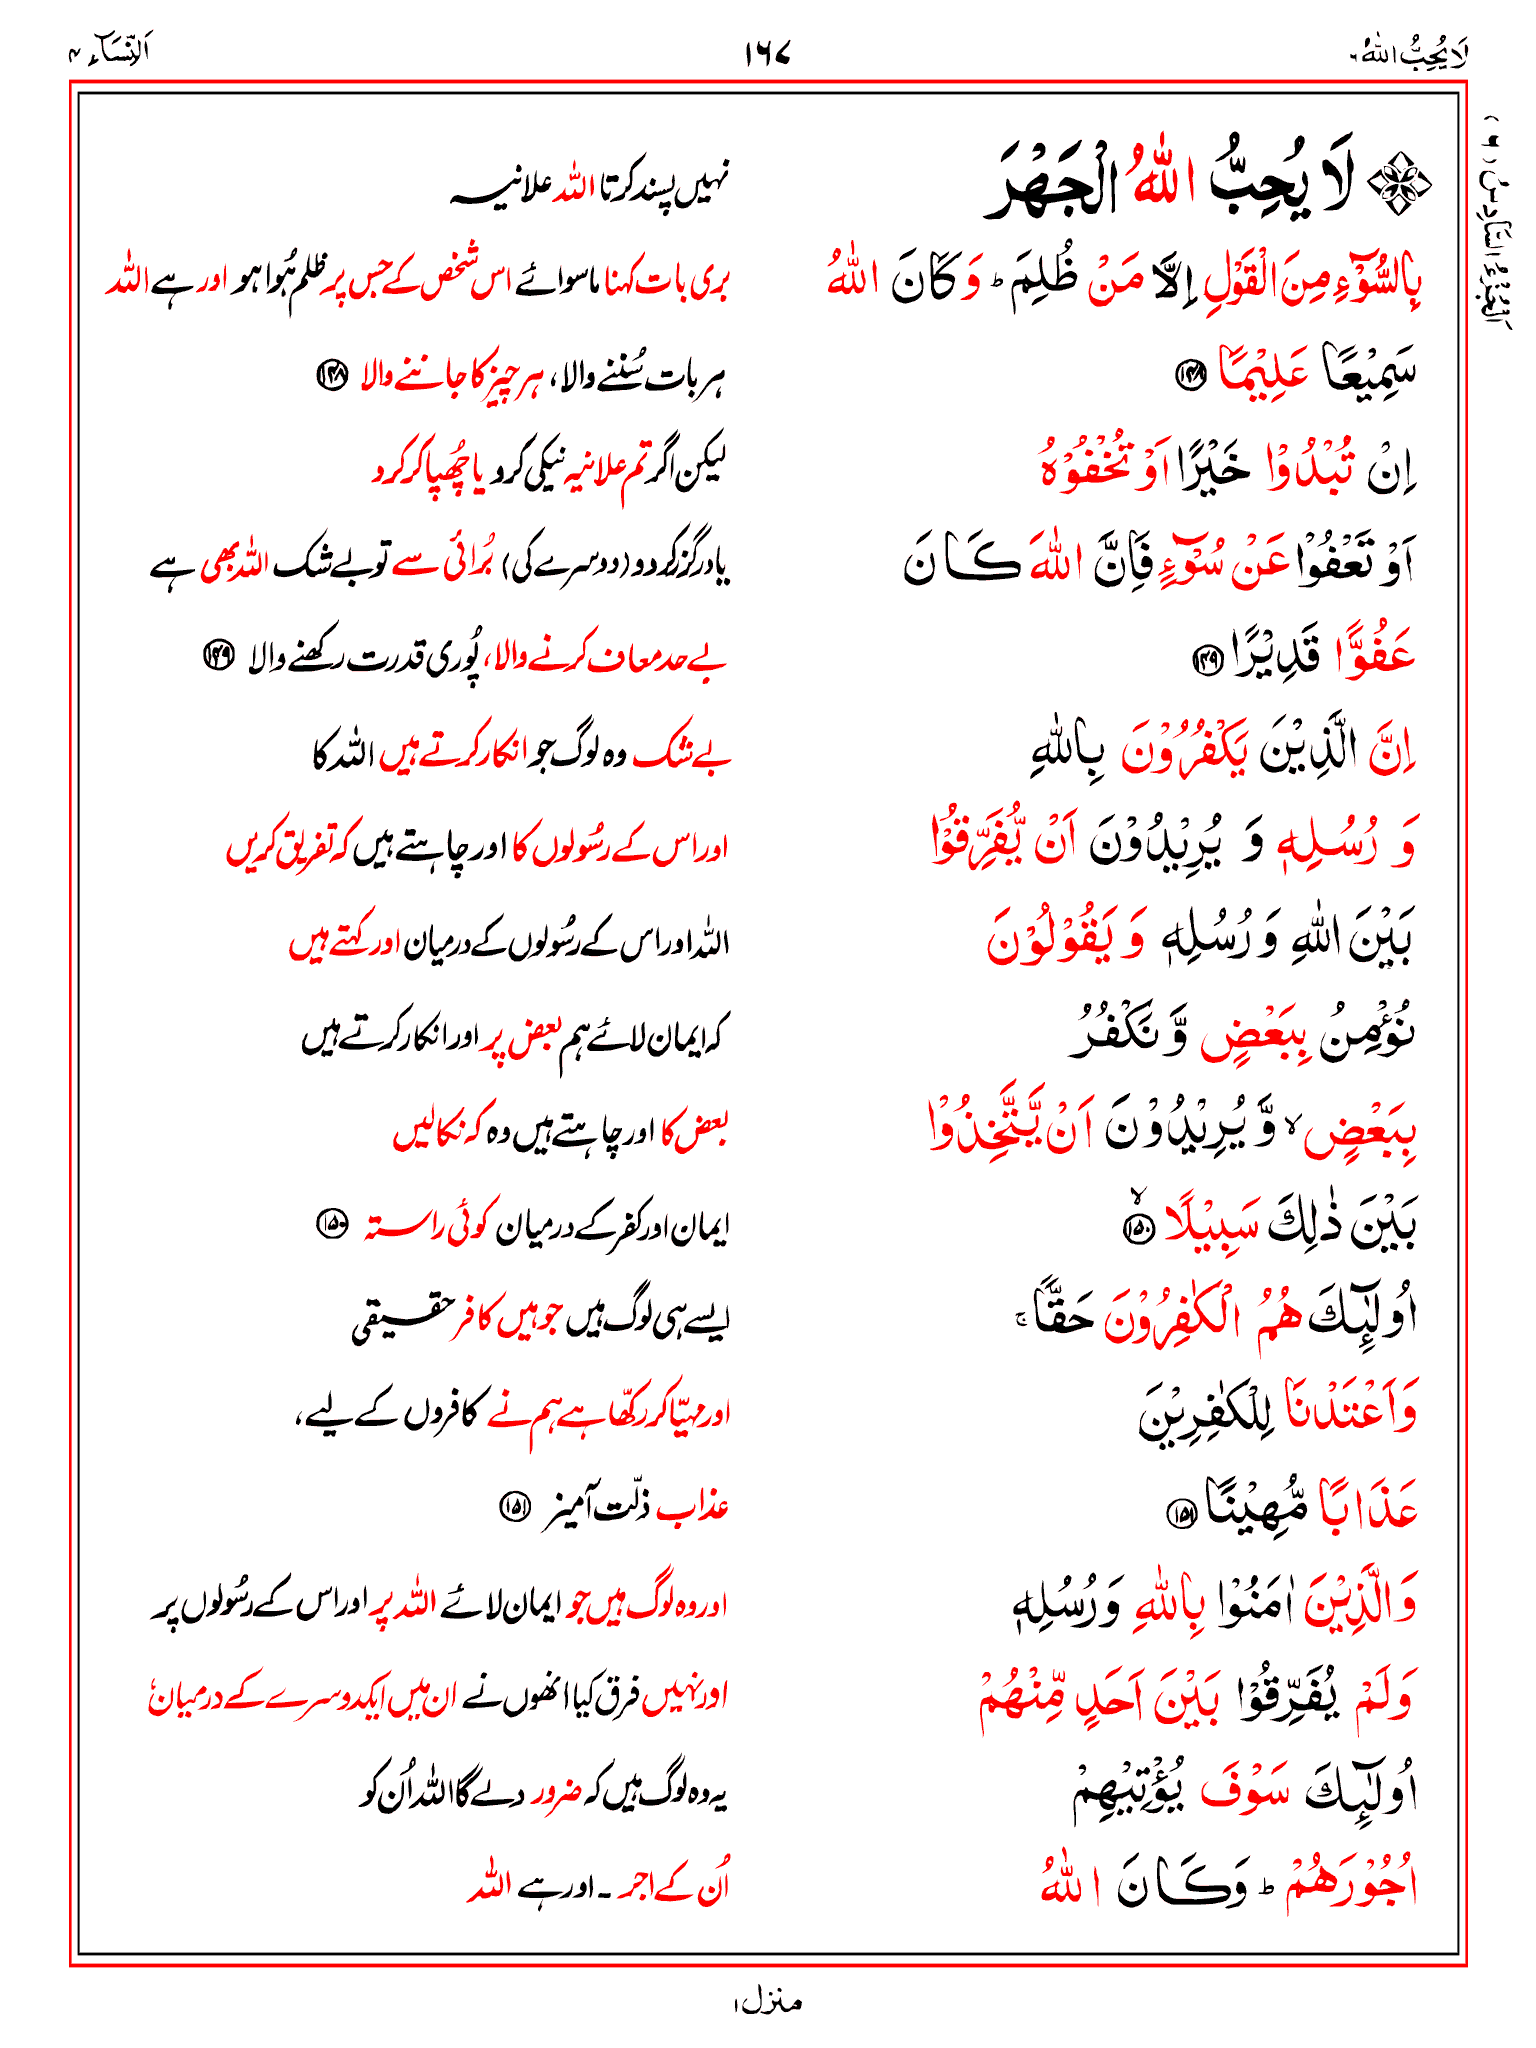 لَا يُحِبُّ اللّٰهُ ٦
١٦٧
اَلنِّسَآء ٤
اَلْجُزْءُ السَّادِسُ (٦)
لَا يُحِبُّ اللّٰهُ الْجَهْرَ
نہیں پسند کرتا اللہ علانیہ
بِالسُّوْٓءِ مِنَ الْقَوْلِ اِلَّا مَنْ ظُلِمَ ؕ وَ كَانَ اللّٰهُ
بری بات کہنا ماسوائے اس شخص کے جس پر ظلم ہُوا ہو اور ہے اللہ
سَمِيْعًا عَلِيْمًا ﴿۱۴۸﴾
ہر بات سُننے والا، ہر چیز کا جاننے والا ﴿۱۴۸﴾
اِنْ تُبْدُوْا خَيْرًا اَوْ تُخْفُوْهُ
لیکن اگر تم علانیہ نیکی کرو یا چُھپا کر کرو
اَوْ تَعْفُوْا عَنْ سُوْٓءٍ فَاِنَّ اللّٰهَ كَانَ
یا درگزر کر دو (دوسرے کی) بُرائی سے تو بے شک اللہ بھی ہے
عَفُوًّا قَدِيْرًا ﴿۱۴۹﴾
بے حد معاف کرنے والا، پُوری قدرت رکھنے والا ﴿۱۴۹﴾
اِنَّ الَّذِيْنَ يَكْفُرُوْنَ بِاللّٰهِ
بے شک وہ لوگ جو انکار کرتے ہیں اللہ کا
وَ رُسُلِهٖ وَ يُرِيْدُوْنَ اَنْ يُّفَرِّقُوْا
اور اس کے رسُولوں کا اور چاہتے ہیں کہ تفریق کریں
بَيْنَ اللّٰهِ وَ رُسُلِهٖ وَ يَقُوْلُوْنَ
اللہ اور اس کے رسُولوں کے درمیان اور کہتے ہیں
نُؤْمِنُ بِبَعْضٍ وَّ نَكْفُرُ
کہ ایمان لائے ہم بعض پر اور انکار کرتے ہیں
بِبَعْضٍ ۙ وَّ يُرِيْدُوْنَ اَنْ يَّتَّخِذُوْا
بعض کا اور چاہتے ہیں وہ کہ نکالیں
بَيْنَ ذٰلِكَ سَبِيْلًا ۙ﴿۱۵۰﴾
ایمان اور کفر کے درمیان کوئی راستہ ﴿۱۵۰﴾
اُولٰٓئِكَ هُمُ الْكٰفِرُوْنَ حَقًّا ۚ
ایسے ہی لوگ ہیں جو ہیں کافر حقیقی
وَاَعْتَدْنَا لِلْكٰفِرِيْنَ
اور مہیّا کر رکھّا ہے ہم نے کافروں کے لیے،
عَذَابًا مُّهِيْنًا ﴿۱۵۱﴾
عذاب ذلّت آمیز ﴿۱۵۱﴾
وَالَّذِيْنَ اٰمَنُوْا بِاللّٰهِ وَرُسُلِهٖ
اور وہ لوگ ہیں جو ایمان لائے اللہ پر اور اس کے رسُولوں پر
وَلَمْ يُفَرِّقُوْا بَيْنَ اَحَدٍ مِّنْهُمْ
اور نہیں فرق کیا انھوں نے ان میں ایک دوسرے کے درمیان
اُولٰٓئِكَ سَوْفَ يُؤْتِيْهِمْ
یہ وہ لوگ ہیں کہ ضرور دے گا اللہ اُن کو
اُجُوْرَهُمْ ؕ وَكَانَ اللّٰهُ
اُن کے اجر ۔ اور ہے اللہ
منزل ۱